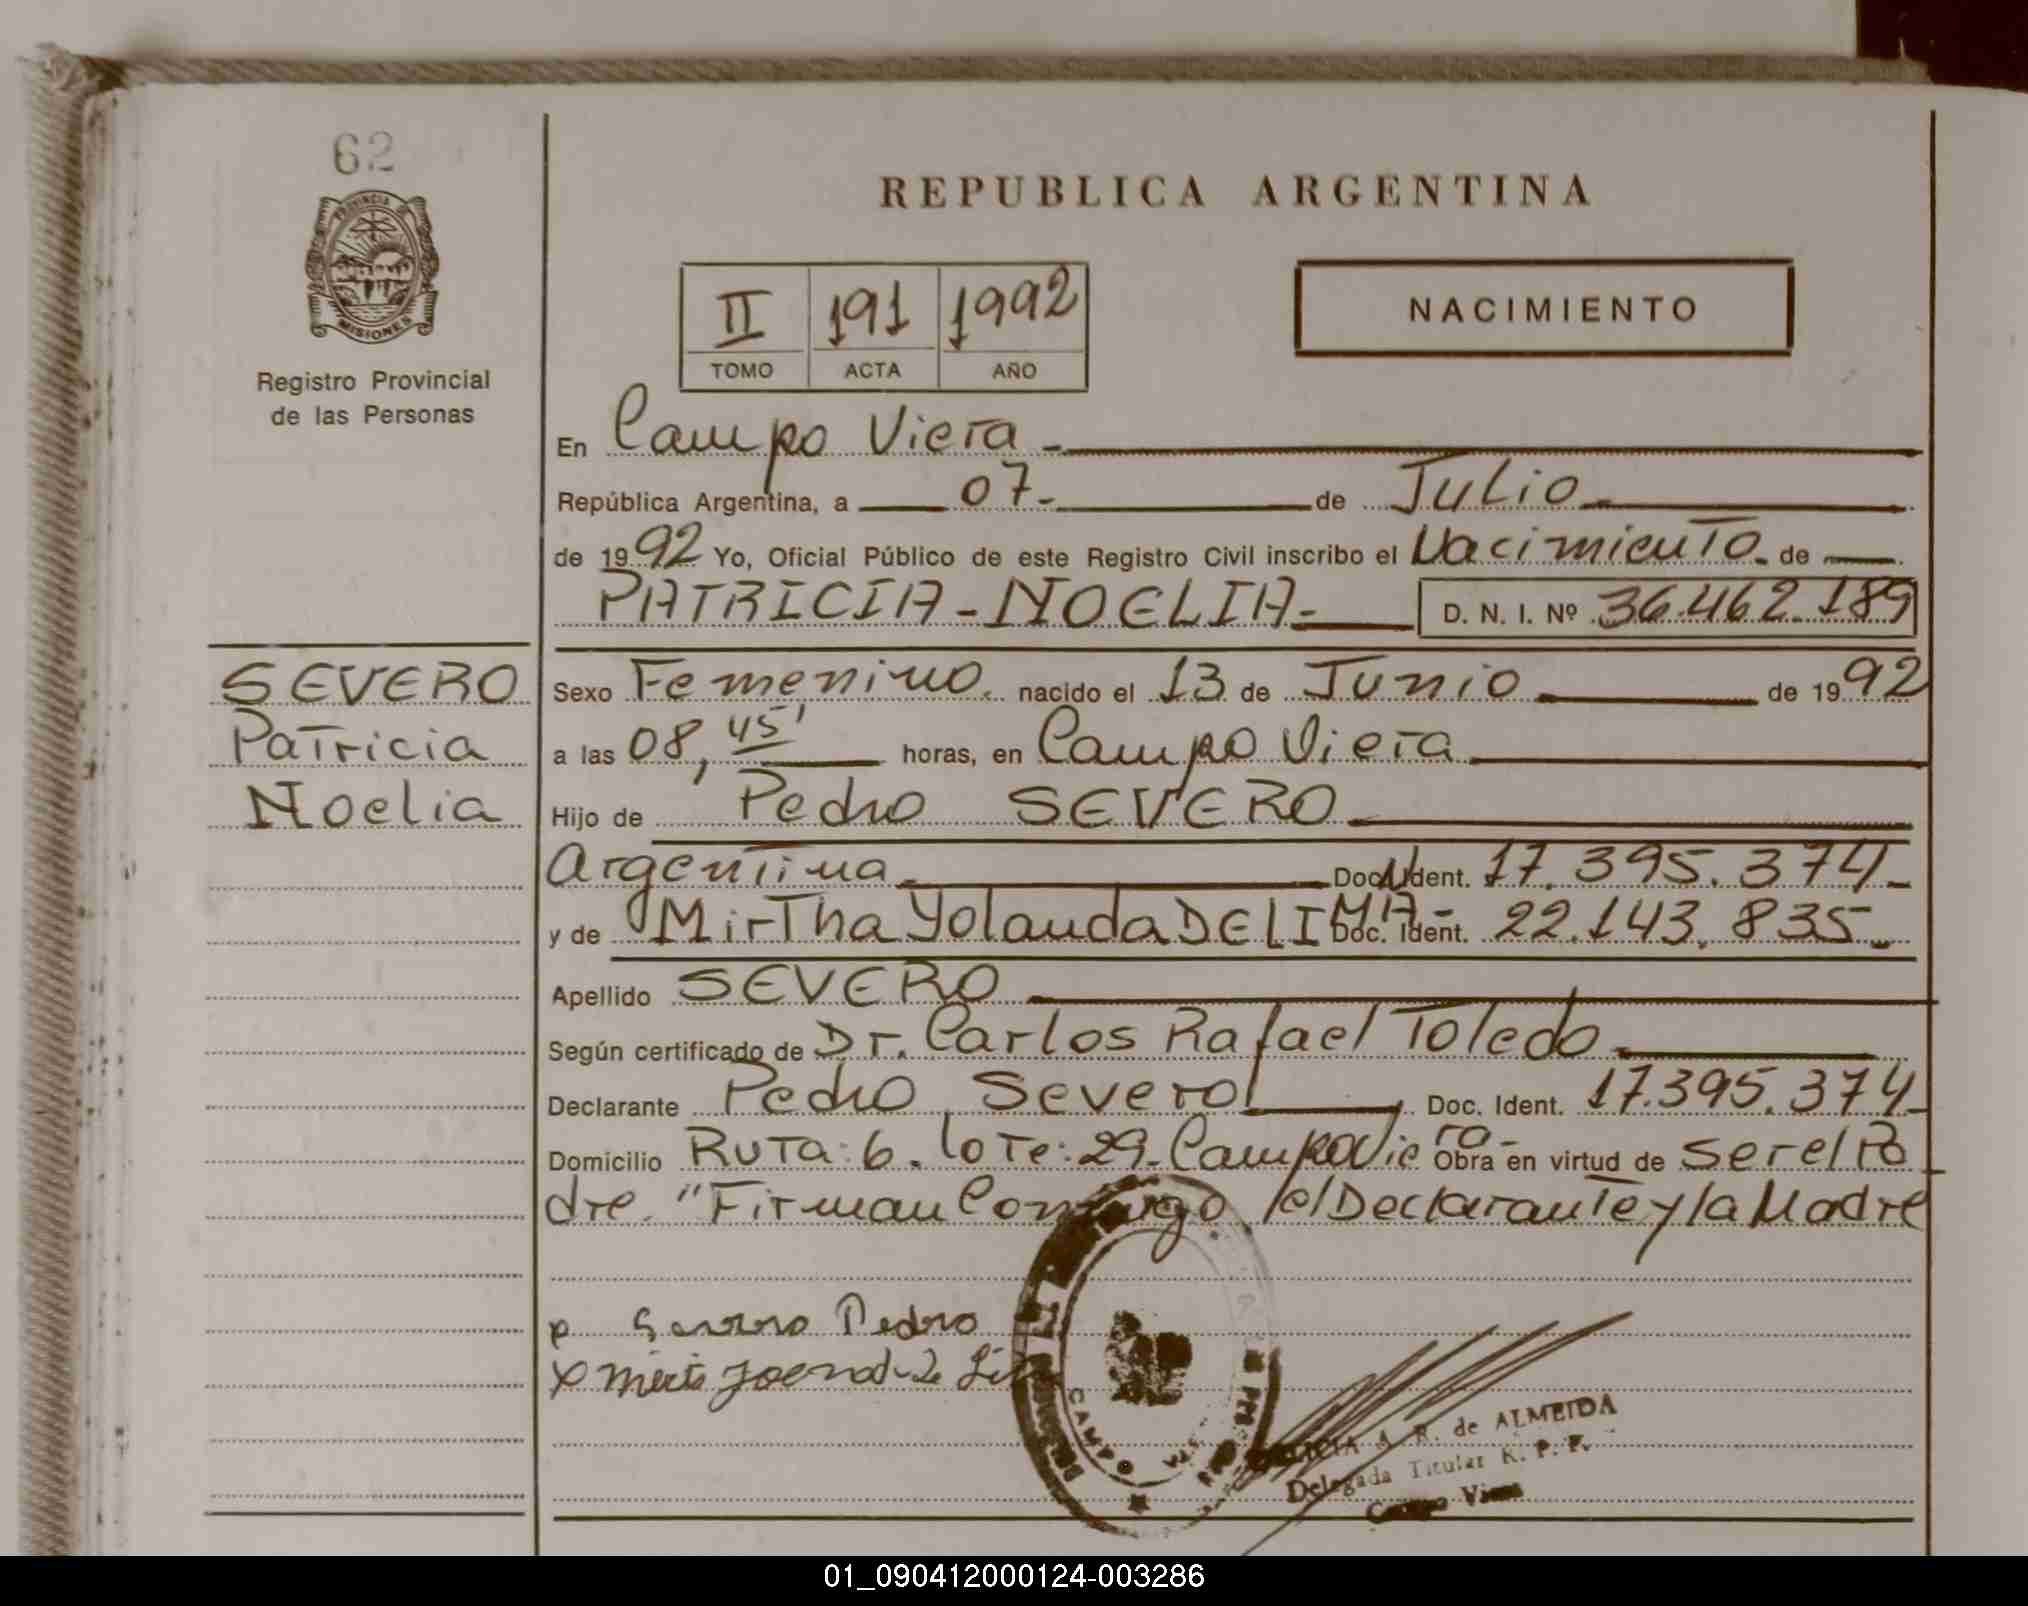 62
PROVINCIA DE
MISIONES
Registro Provincial
de las Personas
REPUBLICA ARGENTINA
II 191 1992
TOMO ACTA AÑO
NACIMIENTO
En Campo Viera
República Argentina, a 07- de Julio
de 1992 Yo, Oficial Público de este Registro Civil inscribo el Nacimiento de
PATRICIA - NOELIA - D. N. I. Nº 36.462.189
SEVERO
Patricia
Noelia
Sexo Femenino. nacido el 13 de Junio de 1992
a las 08,45' horas, en Campo Viera
Hijo de Pedro SEVERO
Argentina Doc. Ident. 17.395.374
y de Mirtha Yolanda DE LIMA - Doc. Ident. 22.143.835
Apellido SEVERO
Según certificado de Dr. Carlos Rafael Toledo
Declarante Pedro Severo Doc. Ident. 17.395.374
Domicilio Ruta: 6. lote: 29. Campo Viera - Obra en virtud de ser el Pa
dre. "Firman Conmigo el Declarante y la Madre
Severo Pedro
CAMPO
A. R. de ALMEIDA
Delegada Titular R. P. P.
Campo Viera
01_090412000124-003286